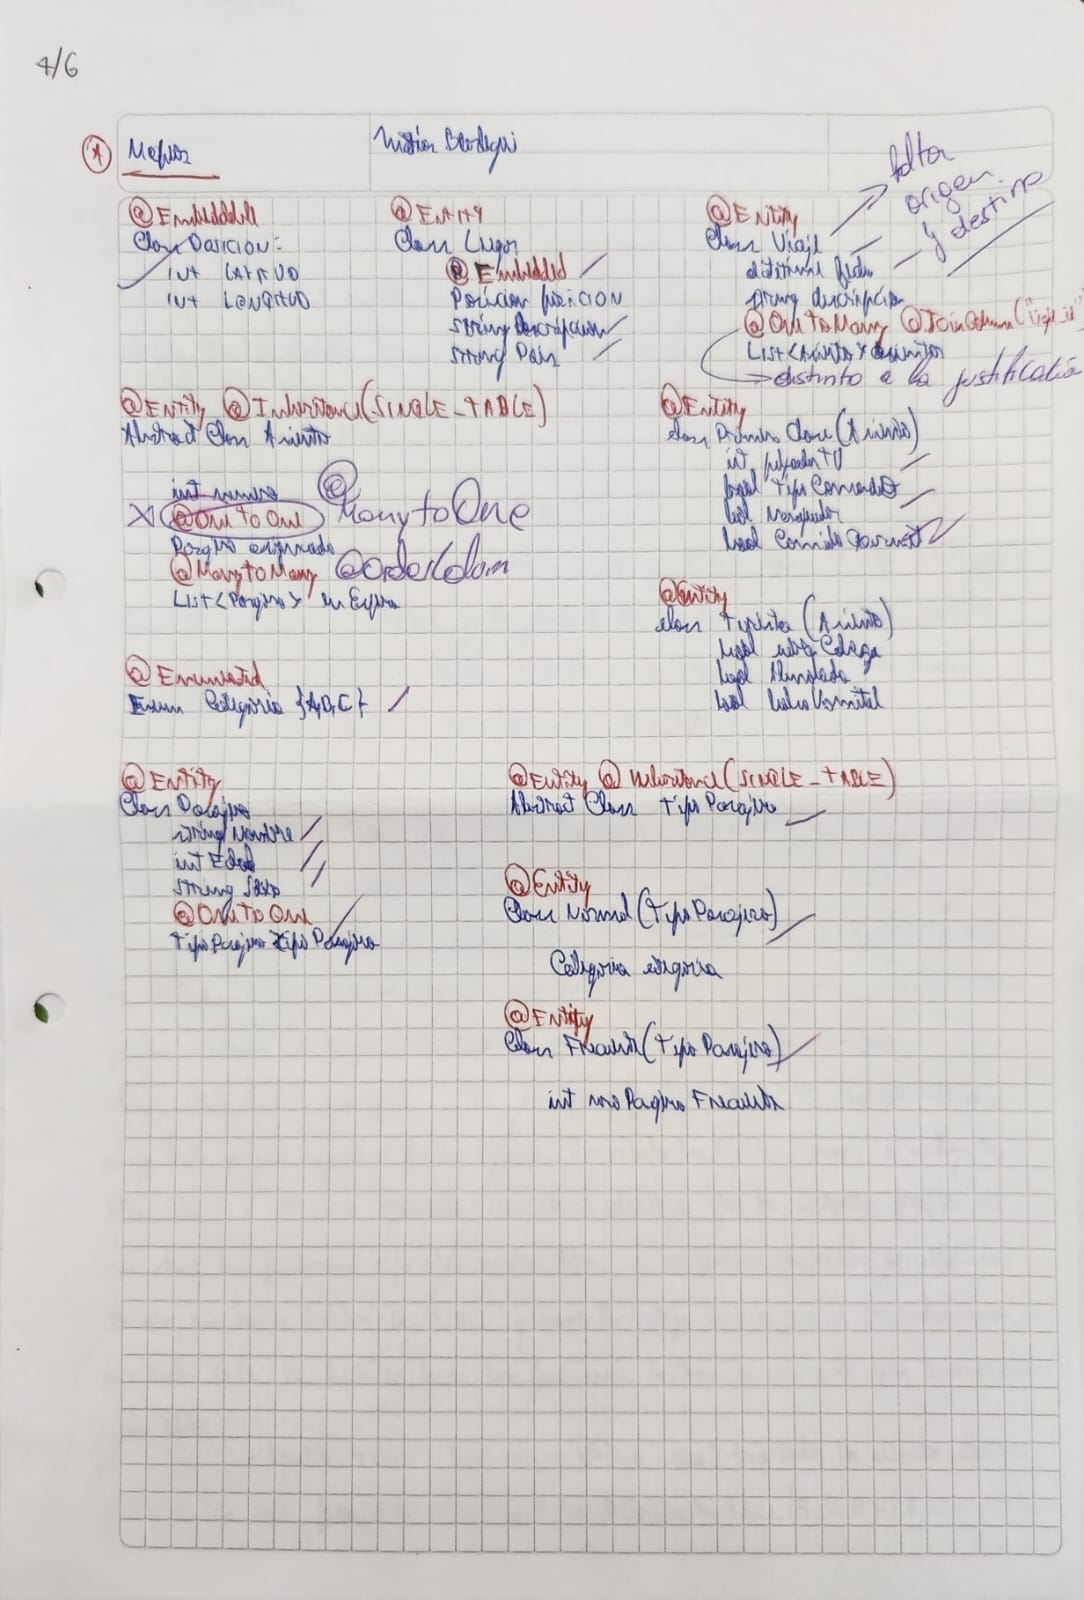 4/6
A Mapeos
Matías
falta
origen
y destino
@Embeddable
Class Posicion:
int LATITUD
int LONGITUD
@Entity
Class Lugar
@Embedded
Posicion posicion
String descripcion
String Pais
@Entity
Class Viaje
datetime fecha
String descripcion
@OneToMany @JoinColumn("viaje_id")
List<Asiento> asientos
distinto a la justificación
@Entity @Inheritance(SINGLE_TABLE)
Abstract Class Asiento
int numero
X @One to One @ManytoOne
Pasajero asignado
@ManytoMany @OrderColum
List<Pasajero> en Espera
@Entity
class Primera Clase (Asiento)
int pulgadasTV
bool Tipo
bool
bool Comida Gourmet
@Entity
class Turista (Asiento)
bool
bool Almohada
bool bolsaVomital
@Enumerated
Enum Categoria {A,B,C}
@Entity
Class Pasajero
String Nombre
int Edad
String Sexo
@One to One
TipoPasajero tipoPasajero
@Entity @Inheritance(SINGLE_TABLE)
Abstract Class TipoPasajero
@Entity
Class Normal (TipoPasajero)
Categoria categoria
@Entity
Class Frecuente (TipoPasajero)
int nroPasajero Frecuente